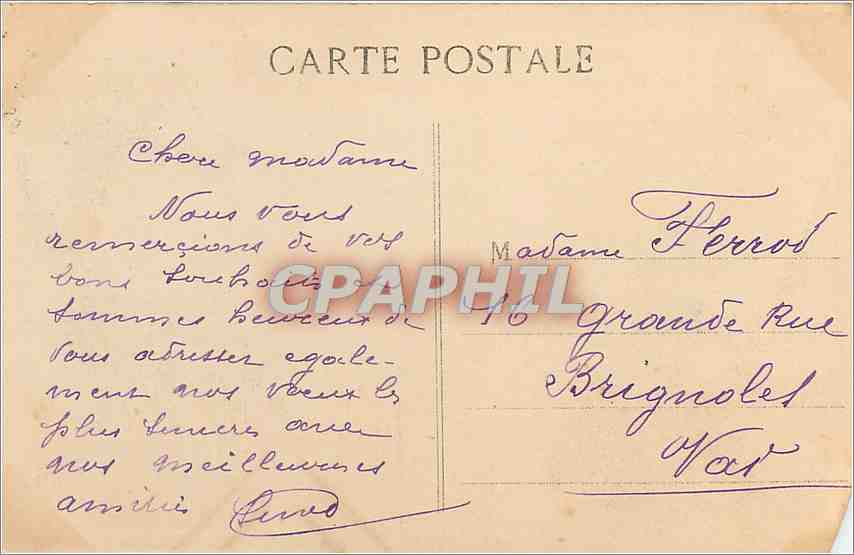 CARTE POSTALE
Chere madame
Nous vous
remerçions de vos
bons souhaits et
sommes heureux de
vous adresser egale-
ment nos vœux les
plus sinceres avec
nos meilleures
amitiés
Madame Ferrod
16 Grande Rue
Brignoles
Var
CPAPHIL